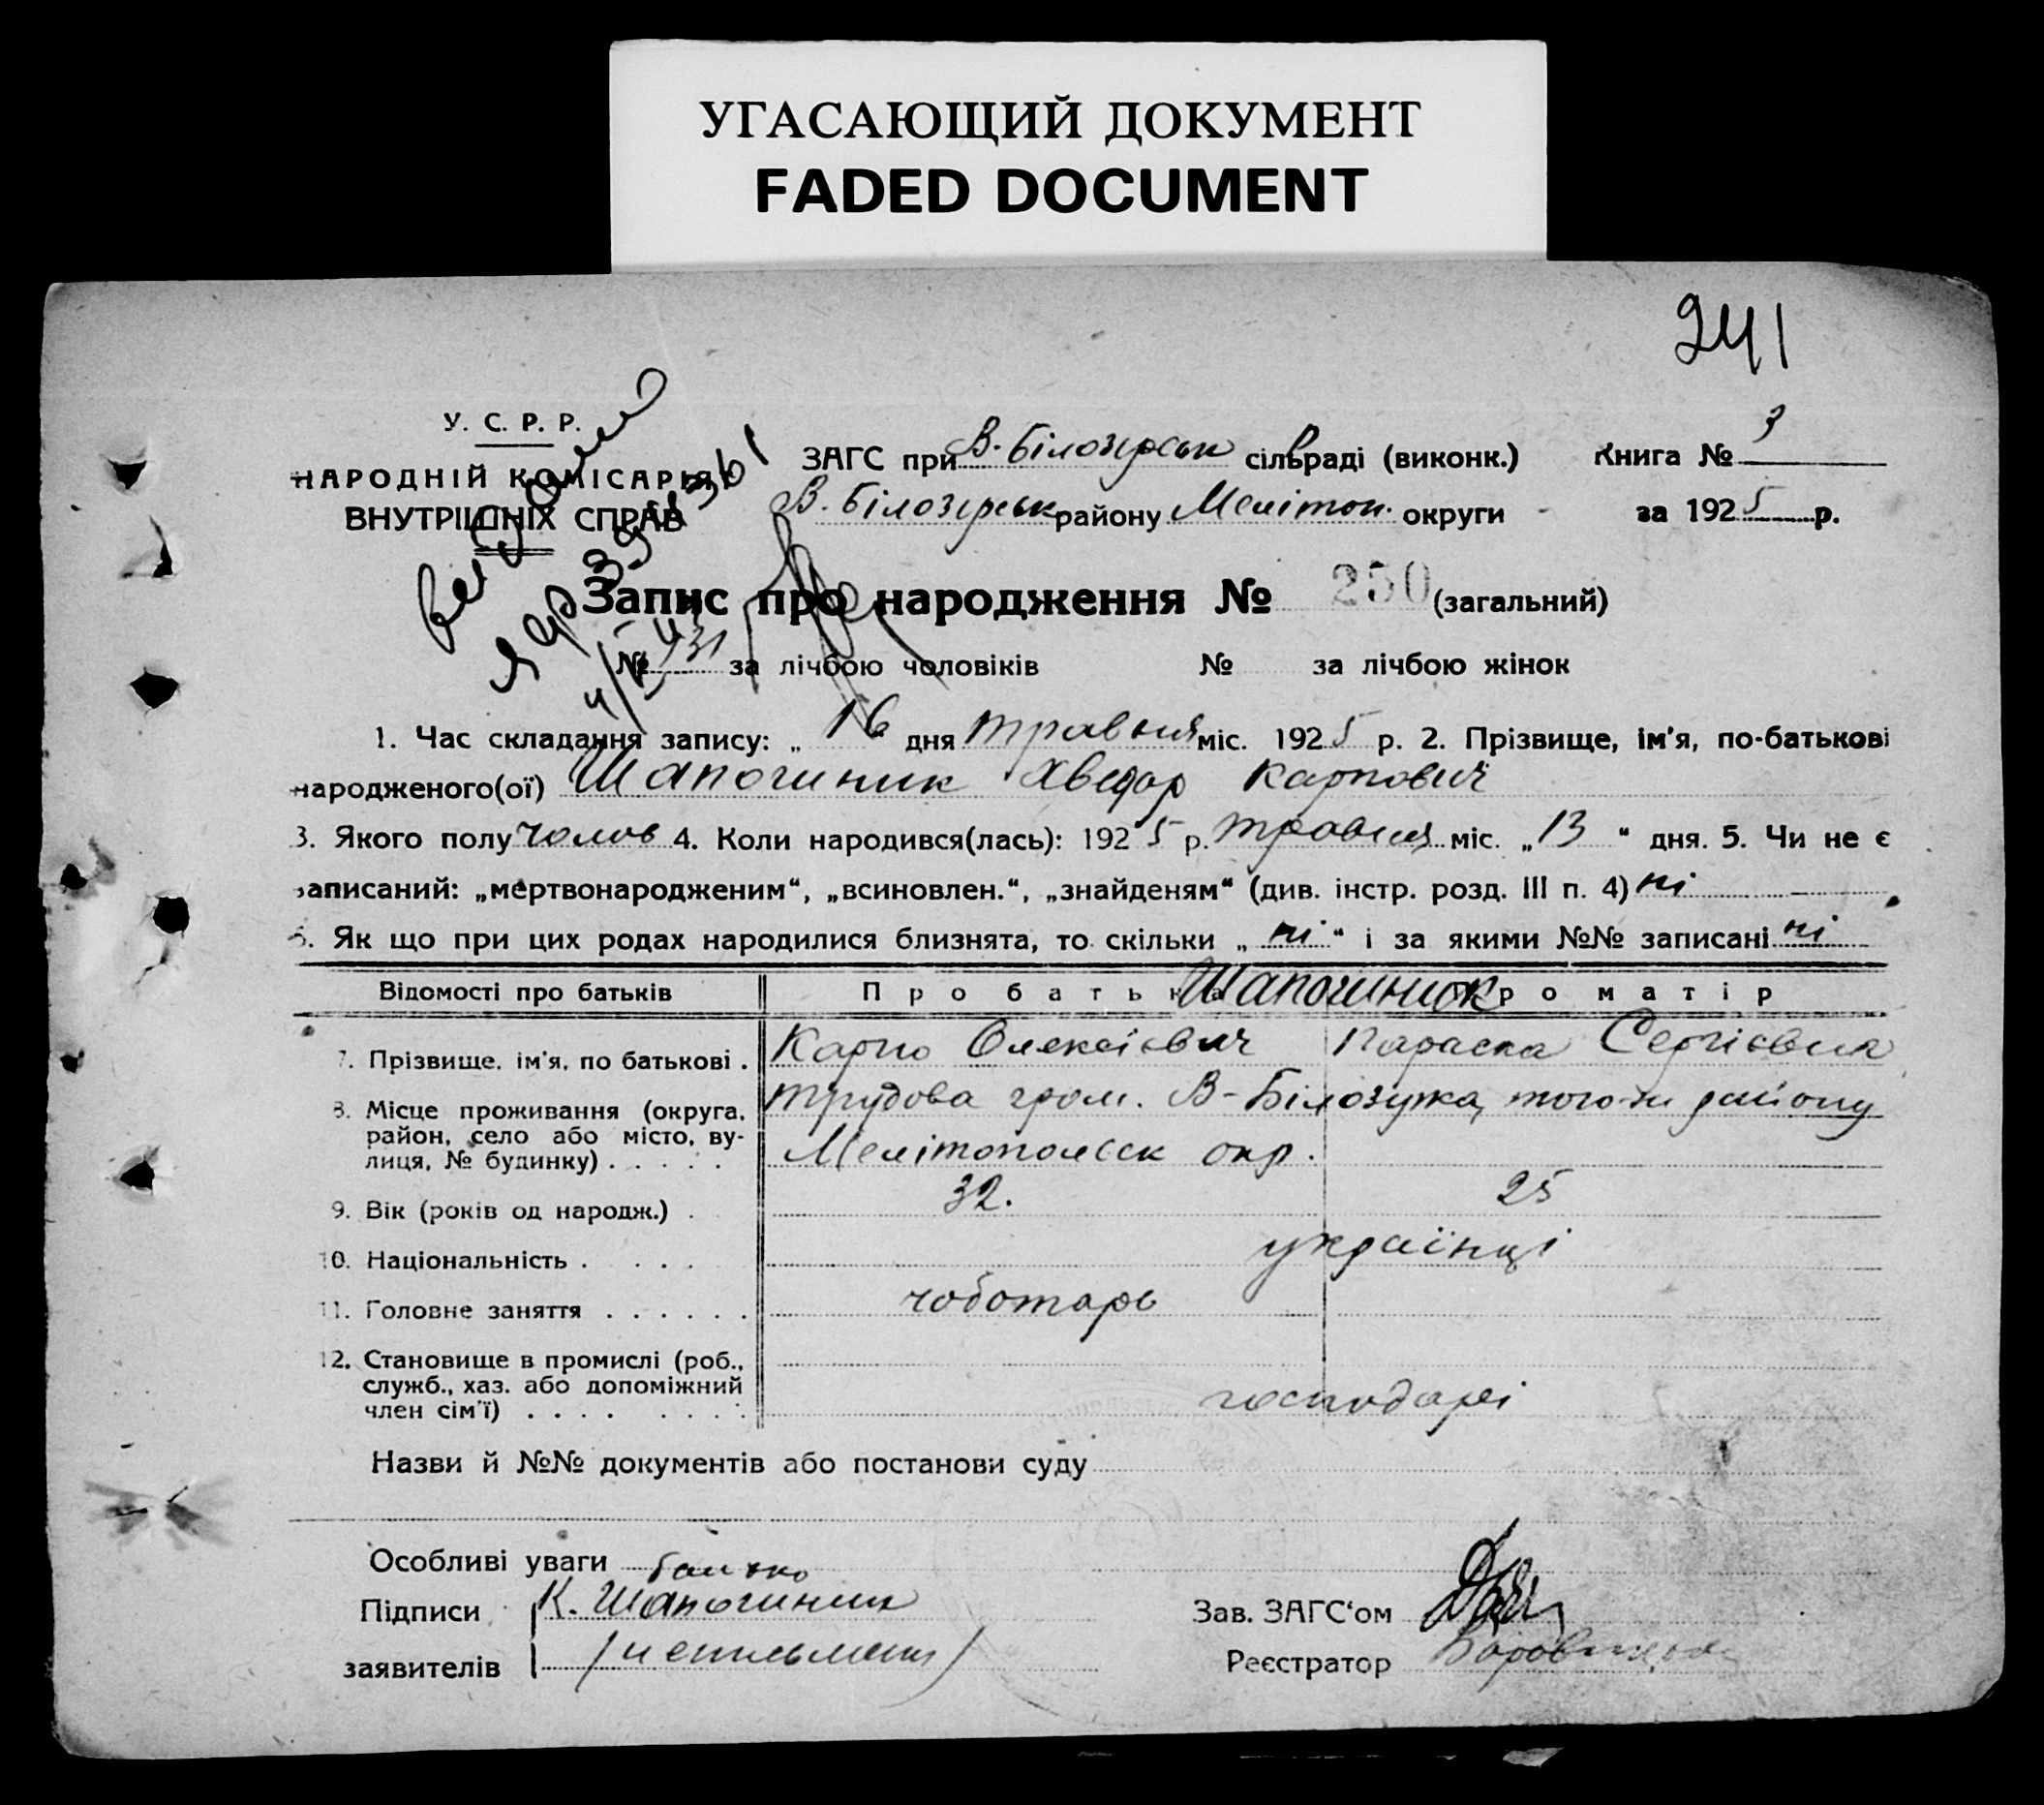 УГАСАЮЩИЙ ДОКУМЕНТ
FADED DOCUMENT
241
У. С. Р. Р.
НАРОДНІЙ КОМІСАРІЯТ
ВНУТРІШНІХ СПРАВ
ЗАГС при В-Білозірськ сільраді (виконк.)
В. Білозірськ району Мелітоп. округи
Книга № 3
за 1925 р.
Запис про народження № 250 (загальний)
№ 131 за лічбою чоловіків № за лічбою жінок
1. Час складання запису: „ 16 дня травня міс. 1925 р. 2. Прізвище, ім'я, по-батькові
народженого(ої) Шапочиник Хведор Карпович
3. Якого полу чолов 4. Коли народився(лась): 1925 р. травня міс. „13 “ дня. 5. Чи не є
записаний: „мертвонародженим“, „всиновлен.“, „знайденям“ (див. інстр. розд. III п. 4) ні
6. Як що при цих родах народилися близнята, то скільки „ ні “ і за якими №№ записані ні
Відомості про батьків Про батька Про матір
Шапочиник
7. Прізвище, ім'я, по батькові . Карпо Олексієвич Параска Сергієвна
8. Місце проживання (округа, район, село або місто, вулиця, № будинку) . . . . . трудова гром. В-Білозирка, того-ж району
Мелітопольск окр.
9. Вік (років од народж.) . 32. 25
10. Національність . . . . . українці
11. Головне заняття . . . . . . чоботарь
12. Становище в промислі (роб., служб., хаз. або допоміжний член сім'ї) . . . . . . . . господарі
Назви й №№ документів або постанови суду
Особливі уваги
батько
Підписи К. Шапочиник
заявителів
Зав. ЗАГС‘ом
Реєстратор